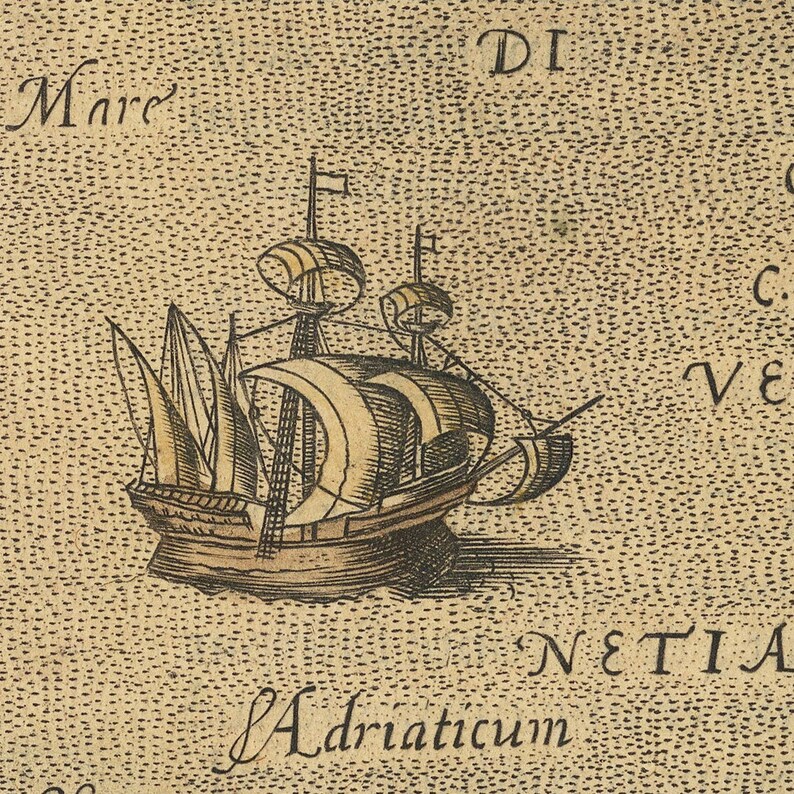 DI
Mare
C.
VE
NETIA
& Adriaticum